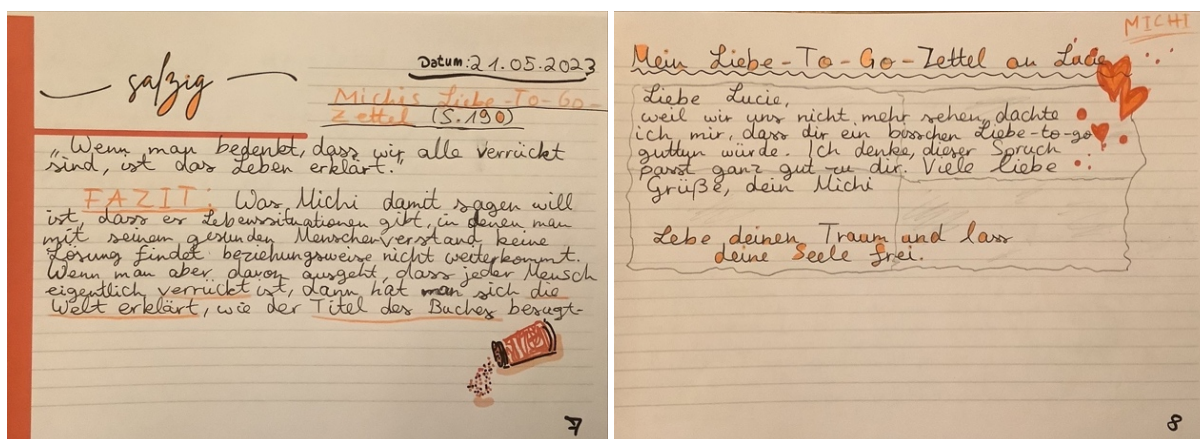 salzig
Datum: 21.05.2023
Michis Liebe-To-Go-
Zettel (S.190)
"Wenn man bedenkt, dass wir alle verrückt
sind, ist das Leben erklärt."
FAZIT: Was Michi damit sagen will
ist, dass es Lebenssituationen gibt, in denen man
mit seinem gesunden Menschenverstand keine
Lösung findet beziehungsweise nicht weiterkommt.
Wenn man aber davon ausgeht, dass jeder Mensch
eigentlich verrückt ist, dann hat man sich die
Welt erklärt, wie der Titel des Buches besagt.
7
MICHI
Mein Liebe-To-Go-Zettel an Lucie
Liebe Lucie,
weil wir uns nicht mehr sehen, dachte
ich mir, dass dir ein bisschen Liebe-to-go
guttun würde. Ich denke, dieser Spruch
passt ganz gut zu dir. Viele liebe
Grüße, dein Michi
Lebe deinen Traum und lass
deine Seele frei.
8